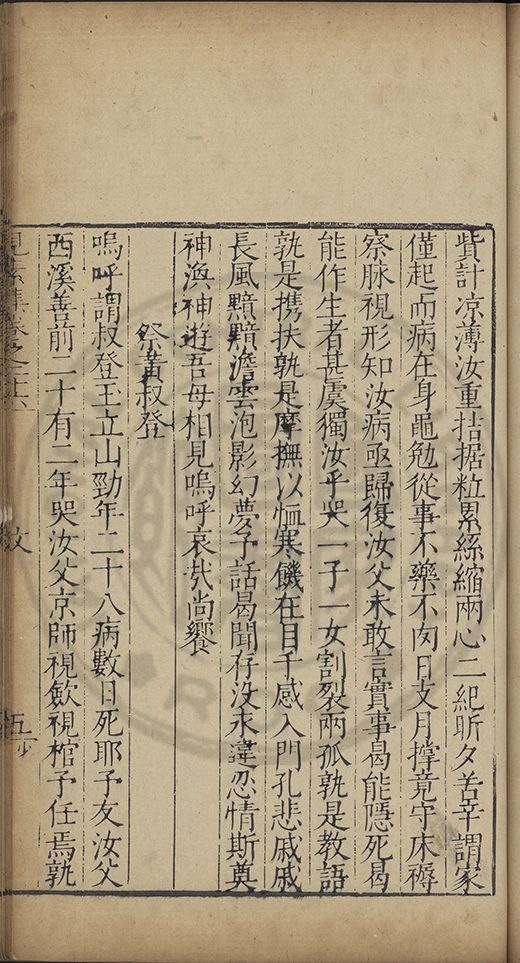 貲計凉薄汝重拮据粒累絲縮兩心二紀昕夕苦辛謂家
僅起而病在身黽勉從事不藥不肉日支月撐竟守床褥
察脉視形知汝病亟歸復汝父未敢言實事曷能隱死曷
能作生者甚虞獨汝乎哭一子一女割裂兩孤孰是教語
孰是携扶孰是摩撫以恤寒饑在目千感入門孔悲戚戚
長風顆顆澹雲泡影幻夢予話曷聞存没永違忍情斯奠
神渙神遊吾母相見嗚呼哀哉尚饗
祭黃叔登
嗚呼謂叔登玉立山勁年二十八病數日死耶予友汝父
西溪善前二十有二年哭汝父京師視歛視棺予任焉孰
卷之二六
文
五